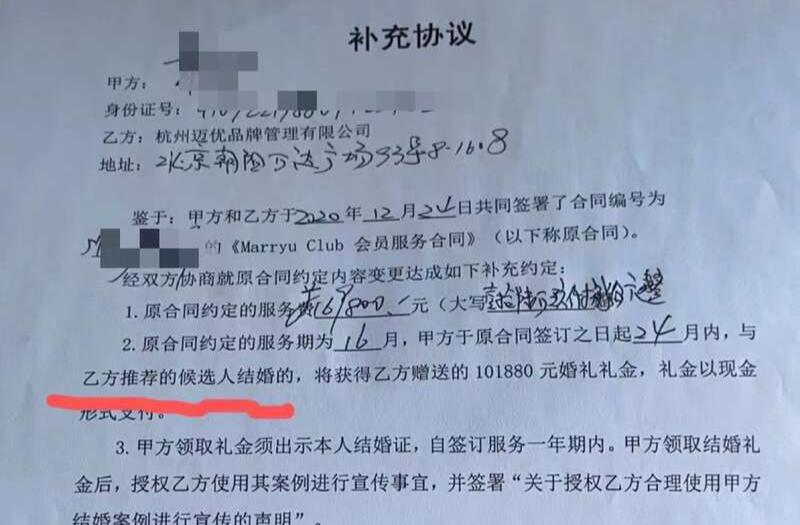 补充协议
甲方：
身份证号：
乙方：杭州迈优品牌管理有限公司
地址：北京朝阳万达广场93号8-1608
鉴于：甲方和乙方于2020年12月24日共同签署了合同编号为
的《Marryu Club 会员服务合同》（以下称原合同）。
经双方协商就原合同约定内容变更达成如下补充约定：
1. 原合同约定的服务费16800元（大写
2. 原合同约定的服务期为16月，甲方于原合同签订之日起24月内，与
乙方推荐的候选人结婚的，将获得乙方赠送的101880元婚礼礼金，礼金以现金
形式支付。
3. 甲方领取礼金须出示本人结婚证，自签订服务一年期内。甲方领取结婚礼
金后，授权乙方使用其案例进行宣传事宜，并签署“关于授权乙方合理使用甲方
结婚案例进行宣传的声明”。